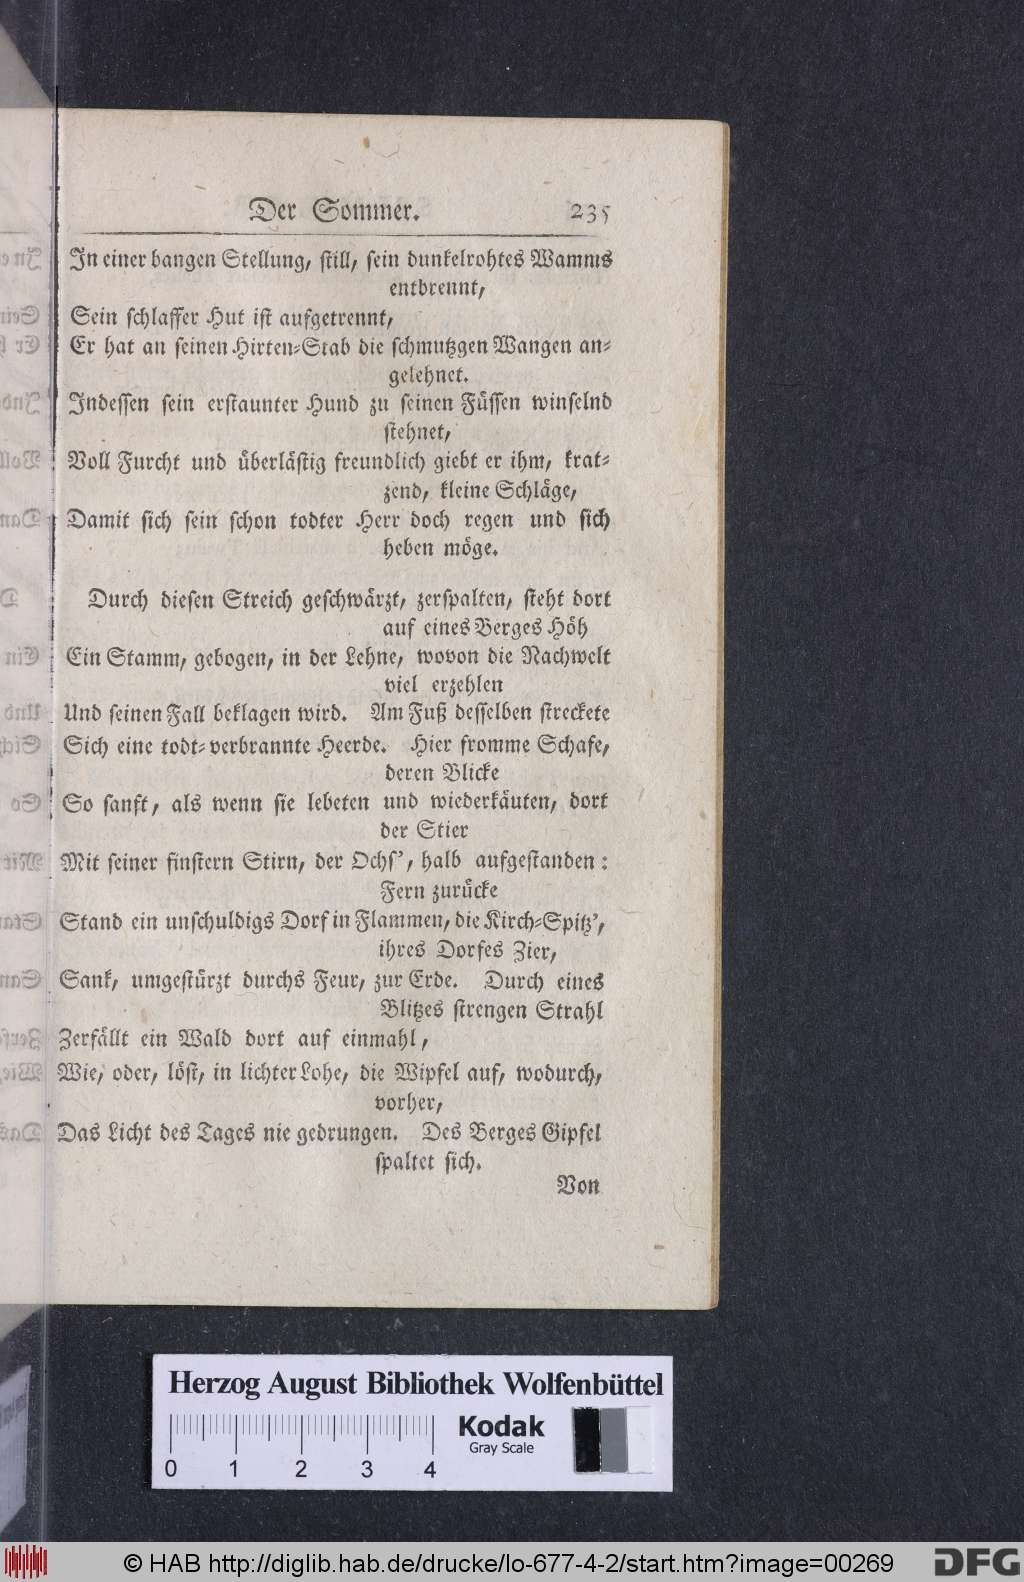 Der Sommer. 235
In einer bangen Stellung, still, sein dunkelrohtes Wamms
entbrennt,
Sein schlaffer Hut ist aufgetrennt,
Er hat an seinen Hirten-Stab die schmutzgen Wangen an-
gelehnet.
Indessen sein erstaunter Hund zu seinen Füssen winselnd
stehnet,
Voll Furcht und überlästig freundlich giebt er ihm, krat-
zend, kleine Schläge,
Damit sich sein schon todter Herr doch regen und sich
heben möge.
Durch diesen Streich geschwärzt, zerspalten, steht dort
auf eines Berges Höh
Ein Stamm, gebogen, in der Lehne, wovon die Nachwelt
viel erzehlen
Und seinen Fall beklagen wird. Am Fuß desselben streckete
Sich eine todt-verbrannte Heerde. Hier fromme Schafe,
deren Blicke
So sanft, als wenn sie lebeten und wiederkäuten, dort
der Stier
Mit seiner finstern Stirn, der Ochs', halb aufgestanden:
Fern zurücke
Stand ein unschuldigs Dorf in Flammen, die Kirch-Spitz',
ihres Dorfes Zier,
Sank, umgestürzt durchs Feur, zur Erde. Durch eines
Blitzes strengen Strahl
Zerfällt ein Wald dort auf einmahl,
Wie, oder, löst, in lichter Lohe, die Wipfel auf, wodurch,
vorher,
Das Licht des Tages nie gedrungen. Des Berges Gipfel
spaltet sich.
Von
Herzog August Bibliothek Wolfenbüttel
Kodak
Gray Scale
0 1 2 3 4
© HAB http://diglib.hab.de/drucke/lo-677-4-2/start.htm?image=00269
DFG